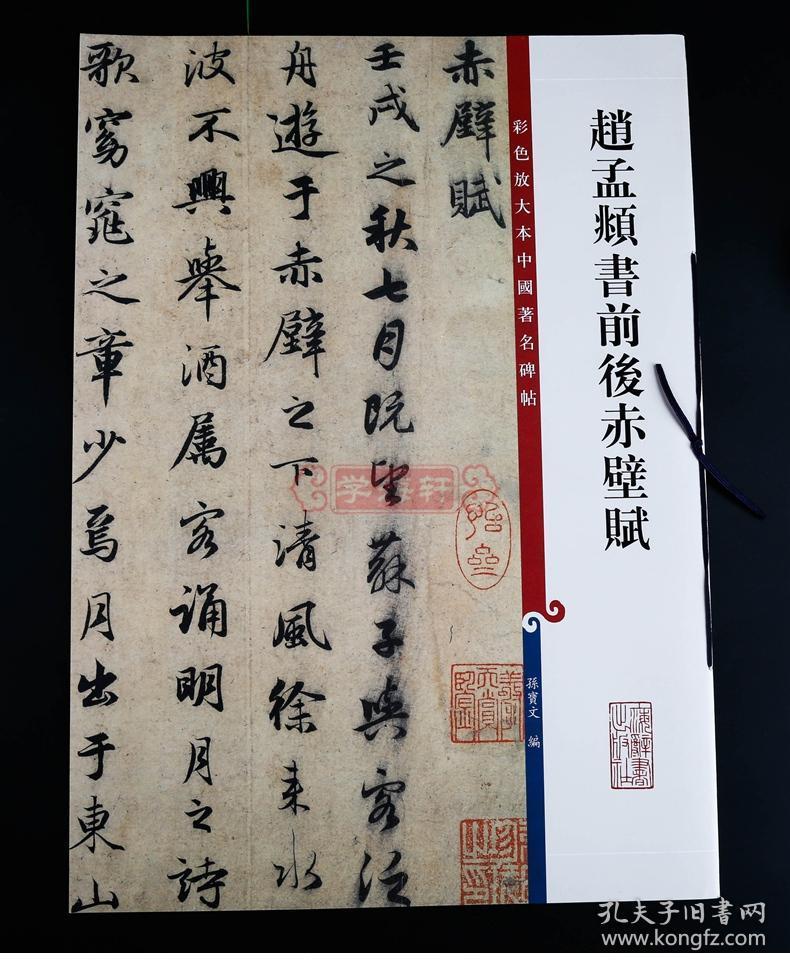 趙孟頫書前後赤壁賦
海辭書出版社
彩色放大本中國著名碑帖
孫寶文 編
赤壁賦
壬戌之秋七月既望蘇子與客泛
舟遊于赤壁之下清風徐來水
波不興舉酒屬客誦明月之詩
歌窈窕之章少焉月出于東山
学海轩
孔夫子旧书网
www.kongfz.com